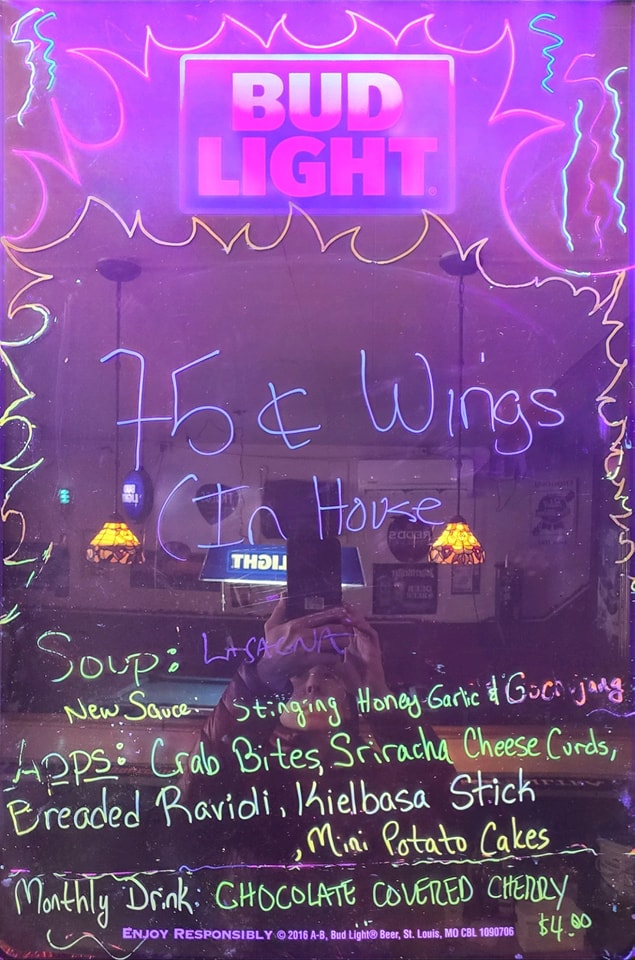 BUD
LIGHT®
75¢ Wings
(In House
LIGHT
Soup: LASAGNA,
New Sauce: Stinging Honey Garlic & Gochujang
Apps: Crab Bites, Sriracha Cheese Curds,
Breaded Ravioli, Kielbasa Stick
, Mini Potato Cakes
Monthly Drink: CHOCOLATE COVERED CHERRY
$4.00
ENJOY RESPONSIBLY © 2016 A-B, Bud Light® Beer, St. Louis, MO CBL 1090706